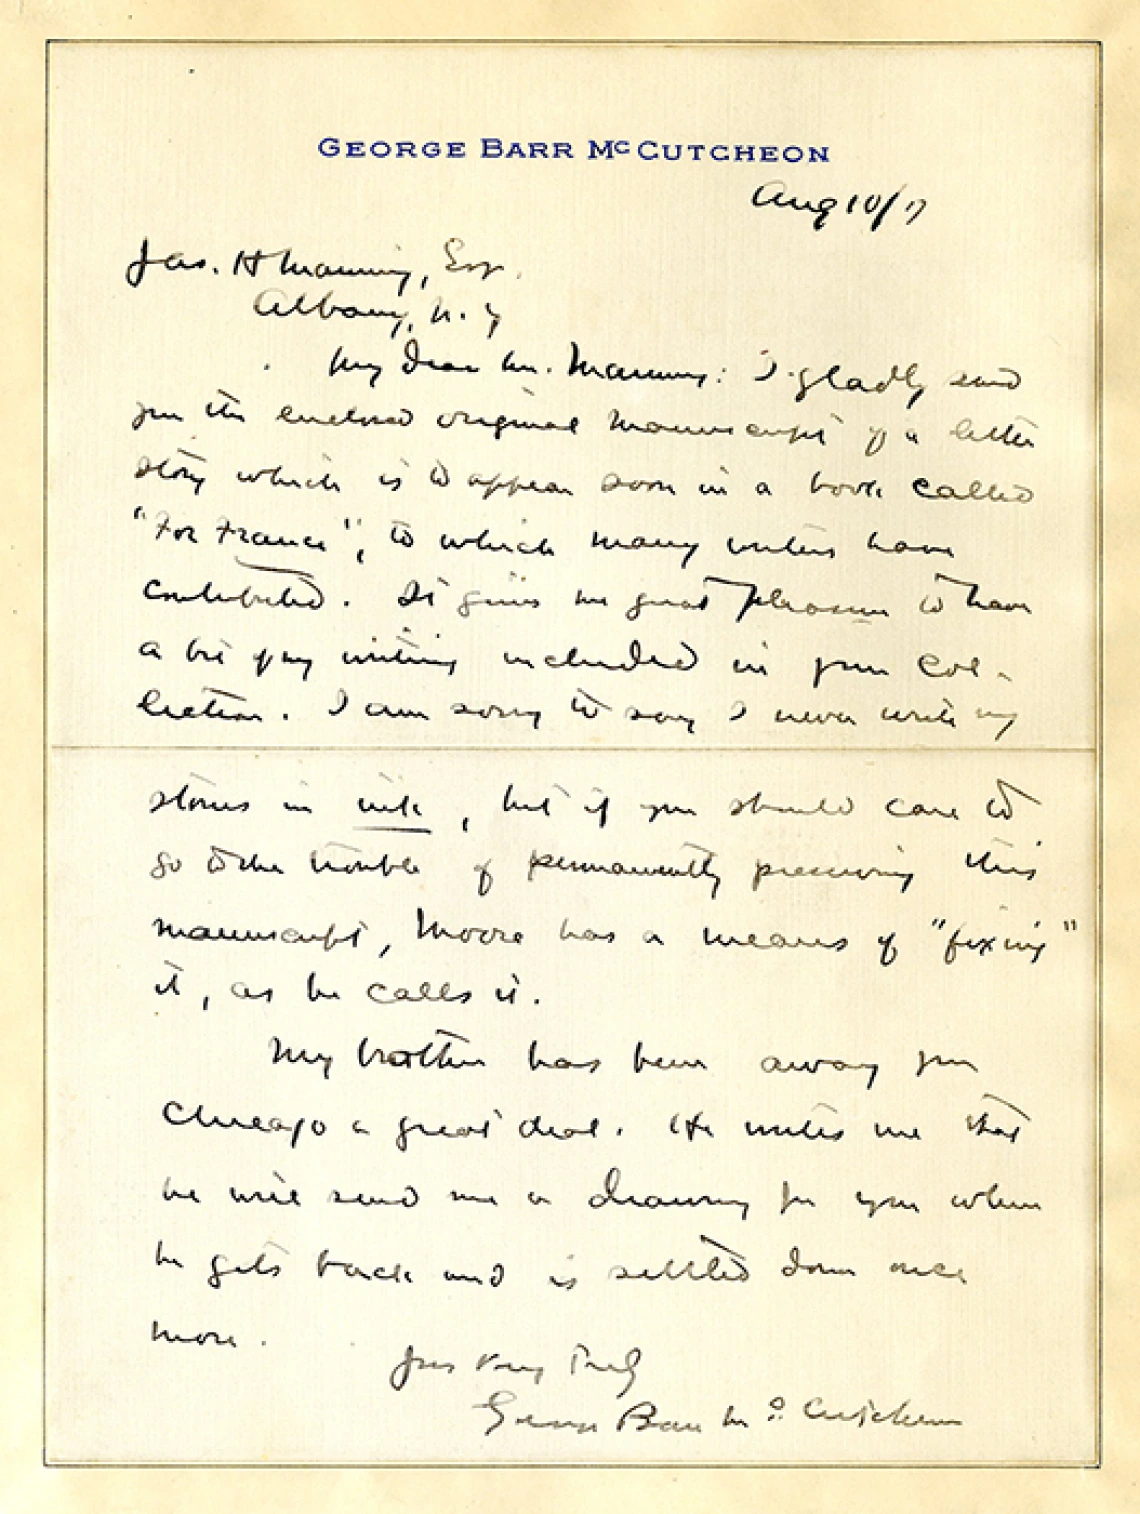 GEORGE BARR McCUTCHEON
Aug 10/17
Jas. H Manning, Esq.
Albany, N. Y
My dear Mr. Manning: I gladly send
you the enclosed original manuscript of a letter
story which is to appear soon in a book called
"For France", to which many writers have
contributed. It gives me great pleasure to have
a bit of my writing included in your col-
lection. I am sorry to say I never write my
stories in ink, but if you should care to
go to the trouble of permanently preserving this
manuscript, Moore has a means of "fixing"
it, as he calls it.
My brother has been away from
Chicago a great deal. He writes me that
he will send me a drawing for you when
he gets back and is settled down once
more.
Yours Very Truly
George Barr McCutcheon